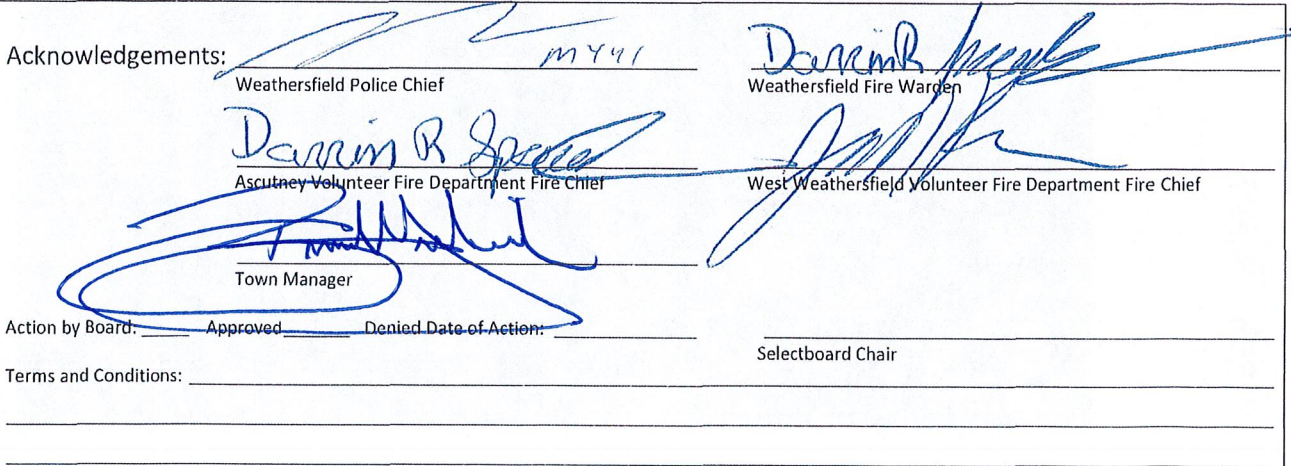 Acknowledgements:
Weathersfield Police Chief
Weathersfield Fire Warden
Darrin R
Darrin R
Ascutney Volunteer Fire Department Fire Chief
West Weathersfield Volunteer Fire Department Fire Chief
Town Manager
Action by Board: _____ Approved _______ Denied Date of Action: _______________
Selectboard Chair
Terms and Conditions: